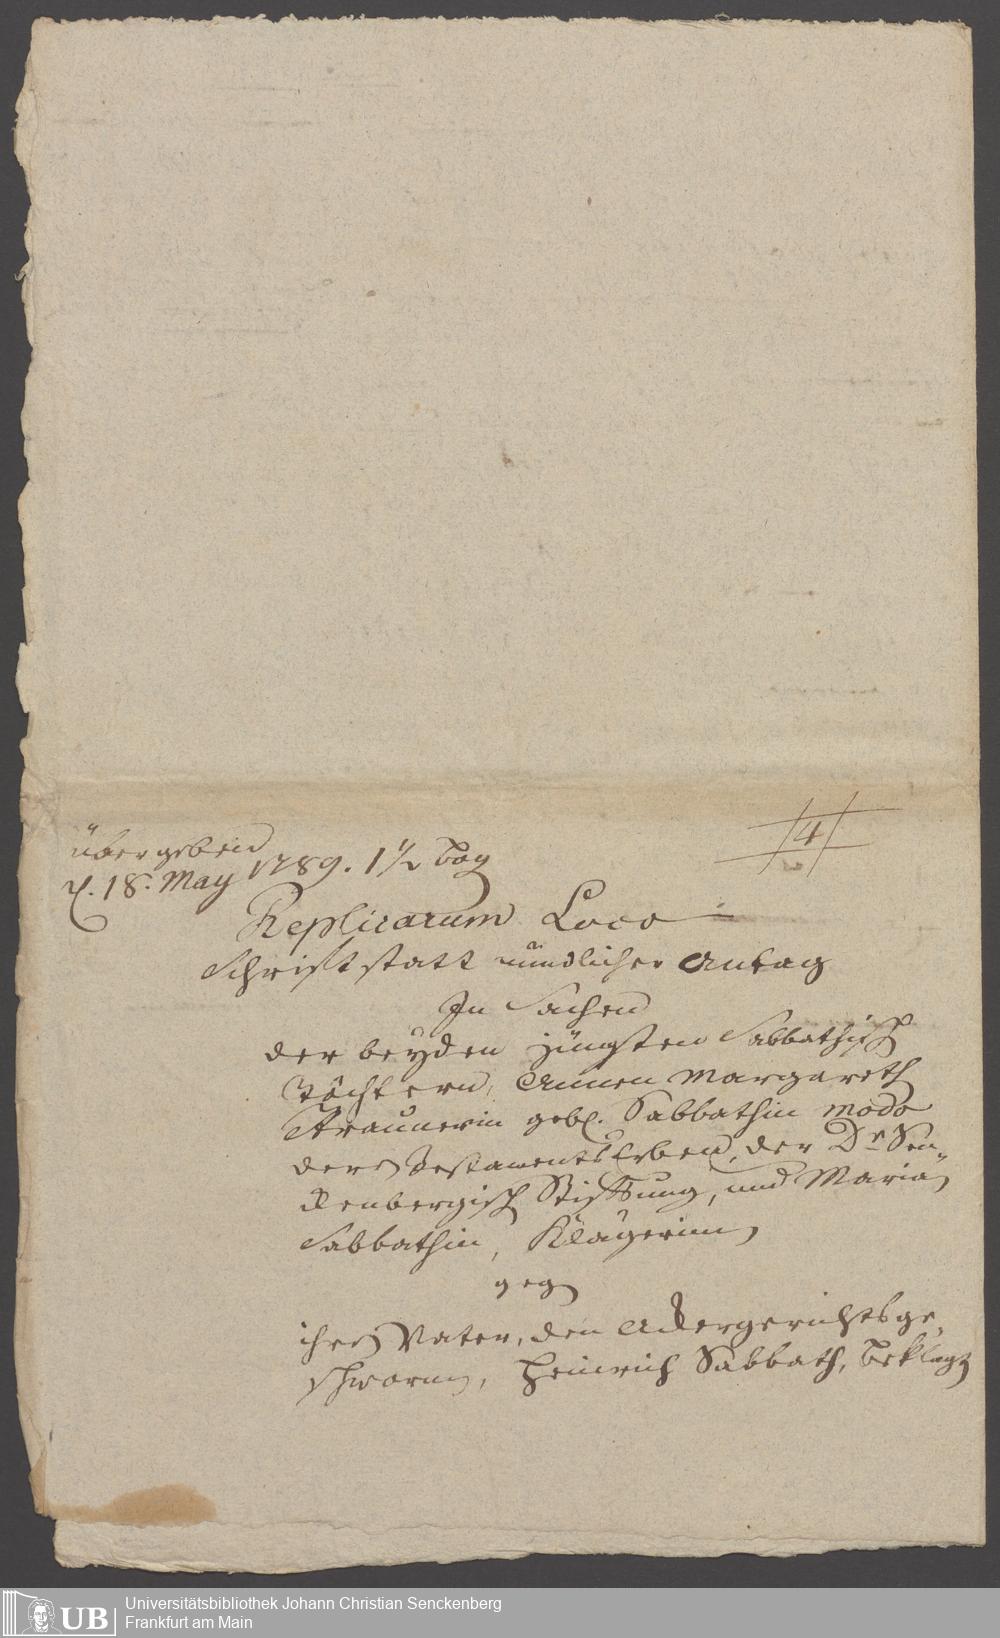 übergeben
d. 18. May 1789. 1 1/2 bog
/4/
Replicarum Loco
Schrift statt mündlicher Antrag
In Sachen
der beyden jüngsten Sabbathisch
Töchtern, Annen Margareth
geb. Sabbathin modo
deren Testaments Erben, der Dr. Sen„
ckenbergisch Stiftung, und Mariä
Sabbathin, Klägerinn
geg
ihren Vater, den Ackergerichtsge„
schworn, Heinrich Sabbath, Beklagt
UB
Universitätsbibliothek Johann Christian Senckenberg
Frankfurt am Main